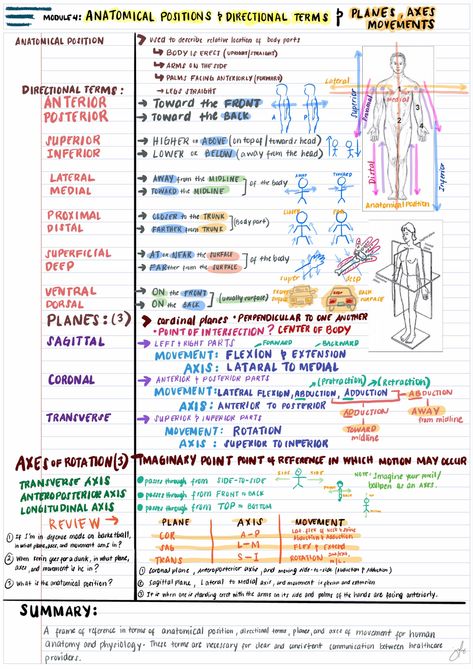 MODULE 4: ANATOMICAL POSITIONS & DIRECTIONAL TERMS & PLANES, AXES
MOVEMENTS
ANATOMICAL POSITION
used to describe relative location of body parts
BODY IS ERECT (UPRIGHT/STRAIGHT)
ARMS ON THE SIDE
PALMS FACING ANTERIORLY (FORWARD)
LEGS STRAIGHT
DIRECTIONAL TERMS:
ANTERIOR
Toward the FRONT
POSTERIOR
Toward the BACK
A P
SUPERIOR
HIGHER or ABOVE (on top of / towards head)
INFERIOR
LOWER or BELOW (away from the head)
LATERAL
AWAY from the MIDLINE
MEDIAL
TOWARD the MIDLINE
of the body
AWAY TOWARD
PROXIMAL
CLOSER to the TRUNK
DISTAL
FARTHER from TRUNK
(Body part)
SUPERFICIAL
AT or NEAR the SURFACE
DEEP
FARther from the SURFACE
of the body
super DEEP
VENTRAL
ON the FRONT
DORSAL
ON the BACK
(usually surface)
Lateral
Medial
Superior
Proximal
1
2
3
4
Distal
Inferior
Anatomical Position
PLANES: (3)
cardinal planes • PERPENDICULAR TO ONE ANOTHER
• POINT OF INTERSECTION? CENTER OF BODY
SAGITTAL
LEFT & RIGHT PARTS
FORWARD BACKWARD
MOVEMENT: FLEXION & EXTENSION
AXIS: LATARAL TO MEDIAL
CORONAL
ANTERIOR & POSTERIOR PARTS
(Protraction) (Retraction)
MOVEMENT: LATERAL FLEXION, ABDUCTION, ADDUCTION
AXIS: ANTERIOR TO POSTERIOR
ABDUCTION
AWAY from midline
ADDUCTION
TOWARD midline
TRANSVERSE
SUPERIOR & INFERIOR PARTS
MOVEMENT: ROTATION
AXIS: SUPERIOR TO INFERIOR
AXES OF ROTATION (3)
IMAGINARY POINT POINT OF REFERENCE IN WHICH MOTION MAY OCCUR
TRANSVERSE AXIS
passes through from SIDE-TO-SIDE
ANTEROPOSTERIOR AXIS
passes through from FRONT to BACK
LONGITUDINAL AXIS
passes through from TOP to BOTTOM
SIDE SIDE
NOTE: Imagine your pencil/
ballpen as an AXES.
REVIEW
① If I'm in defense mode on basketball,
in what plane, axes, and movement am I in?
in what plane,
axes, and movement is he in?
③ What is the anatomical position?
PLANE AXIS MOVEMENT
COR A-P
Abduction & Adduction
SAG L-M FLEX & EXTEND
TRANS S-I ROTATION
① coronal plane, anteroposterior axis, and moving side-to-side (abduction & adduction)
② sagittal plane, lateral to medial axis, and movement is flexion and extension
③ It is when one is standing erect with the arms on its side and palms of the hands are facing anteriorly.
SUMMARY:
A frame of reference in terms of anatomical position, directional terms, planes, and axes of movement for human
anatomy and physiology. These terms are necessary for clear and consistent communication between healthcare
providers.